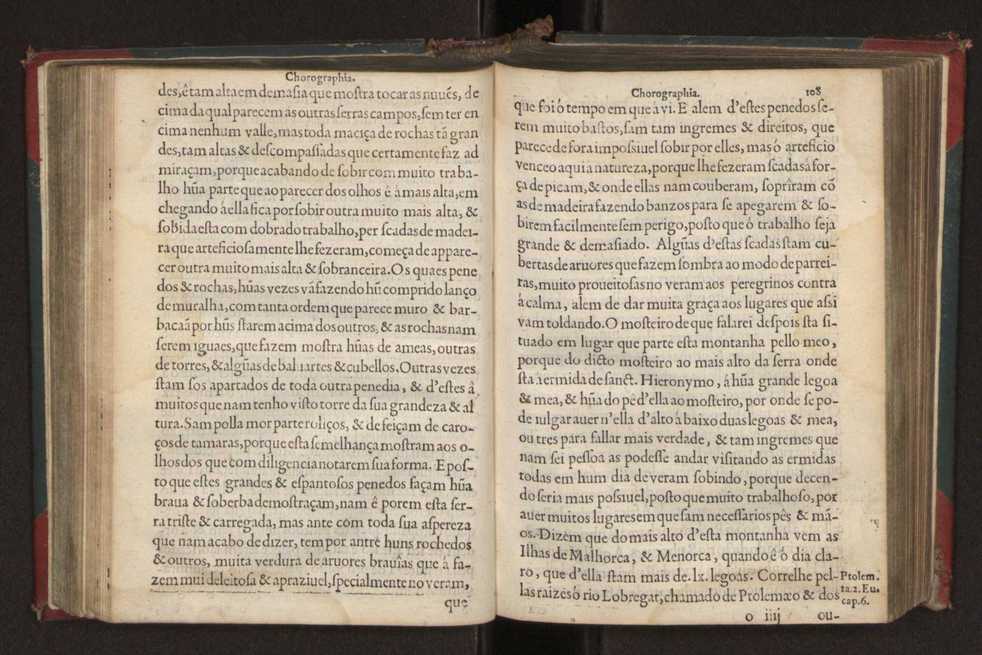 Chorographia.
des, é tam alta em demasia que mostra tocar as nuuẽs, de
cima da qual parecem as outras serras campos, sem ter en
cima nenhum valle, mas toda maciça de rochas tã gran
des, tam altas & descompassadas que certamente faz ad
miraçam, porque acabando de sobir com muito traba-
lho hũa parte que ao parecer dos olhos é à mais alta, em
chegando á ella fica por sobir outra muito mais alta, &
sobida esta com dobrado trabalho, per scadas de madei-
ra que arteficiosamente lhe fezeram, começa de appare-
cer outra muito mais alta & sobranceira. Os quaes pene
dos & rochas, hũas vezes vã fazendo hũ comprido lanço
de muralha, com tanta ordem que parece muro & bar-
bacaã por hũs starem acima dos outros, & as rochas nam
serem iguaes, que fazem mostra hũas de ameas, outras
de torres, & algũas de baluartes & cubellos. Outras vezes
stam sos apartados de toda outra penedia, & d'estes â
muitos que nam tenho visto torre da sua grandeza & al
tura. Sam polla mor parte roliços, & de feiçam de caro-
ços de tamaras, porque esta semelhança mostram aos o-
lhos dos que com diligencia notarem sua forma. E pos-
to que estes grandes & espantosos penedos façam hũa
braua & soberba demostraçam, nam é porem esta ser-
ra triste & carregada, mas ante com toda sua aspereza
que nam acabo de dizer, tem por antre huns rochedos
& outros, muita verdura de aruores brauïas que à fa-
zem mui deleitosa & apraziuel, specialmente no veram,
que
Chorographia. 108
que foi ò tempo em que à vi. E alem d'estes penedos se-
rem muito bastos, sam tam ingremes & direitos, que
parece de fora impossiuel sobir por elles, mas ò arteficio
venceo aqui a natureza, porque lhe fezeram scadas á for-
ça de picam, & onde ellas nam couberam, sopriram cõ
as de madeira fazendo banzos para se apegarem & so-
birem facilmente sem perigo, posto que ò trabalho seja
grande & demasiado. Algũas d'estas scadas stam cu-
bertas de aruores que fazem sombra ao modo de parrei-
ras, muito proueitosas no veram aos peregrinos contra
á calma, alem de dar muita graça aos lugares que assi
vam toldando. O mosteiro de que falarei despois sta si-
tuado em lugar que parte esta montanha pello meo,
porque do dicto mosteiro ao mais alto da serra onde
sta a ermida de sanct. Hieronymo, á hũa grande legoa
& mea, & hũa do pé d'ella ao mosteiro, por onde se po-
de iulgar auer n'ella d'alto à baixo duas legoas & mea,
ou tres para fallar mais verdade, & tam ingremes que
nam sei pessoa as podesse andar visitando as ermidas
todas em hum dia de veram sobindo, porque decen-
do seria mais possiuel, posto que muito trabalhoso, por
auer muitos lugares em que sam necessarios pês & mã-
os. Dizem que do mais alto d'esta montanha vem as
Ilhas de Malhorca, & Menorca, quando é ò dia cla-
ro, que d'ella stam mais de. lx. legoas. Correlhe pel-
las raizes ò rio Lobregat, chamado de Ptolemæo & dos
Ptolem.
ta.2. Eu.
cap.6.
o iiij ou-